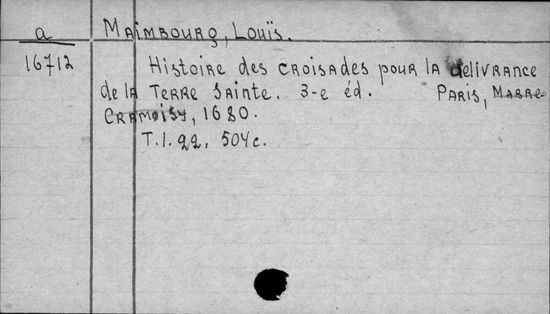 a
Maimbourg, Louïs.
16712
Histoire des croisades pour la delivrance
de la Terre Sainte. 3-e éd. Paris, Mabre-
Cramoisy, 1680.
T.1. 22, 504c.